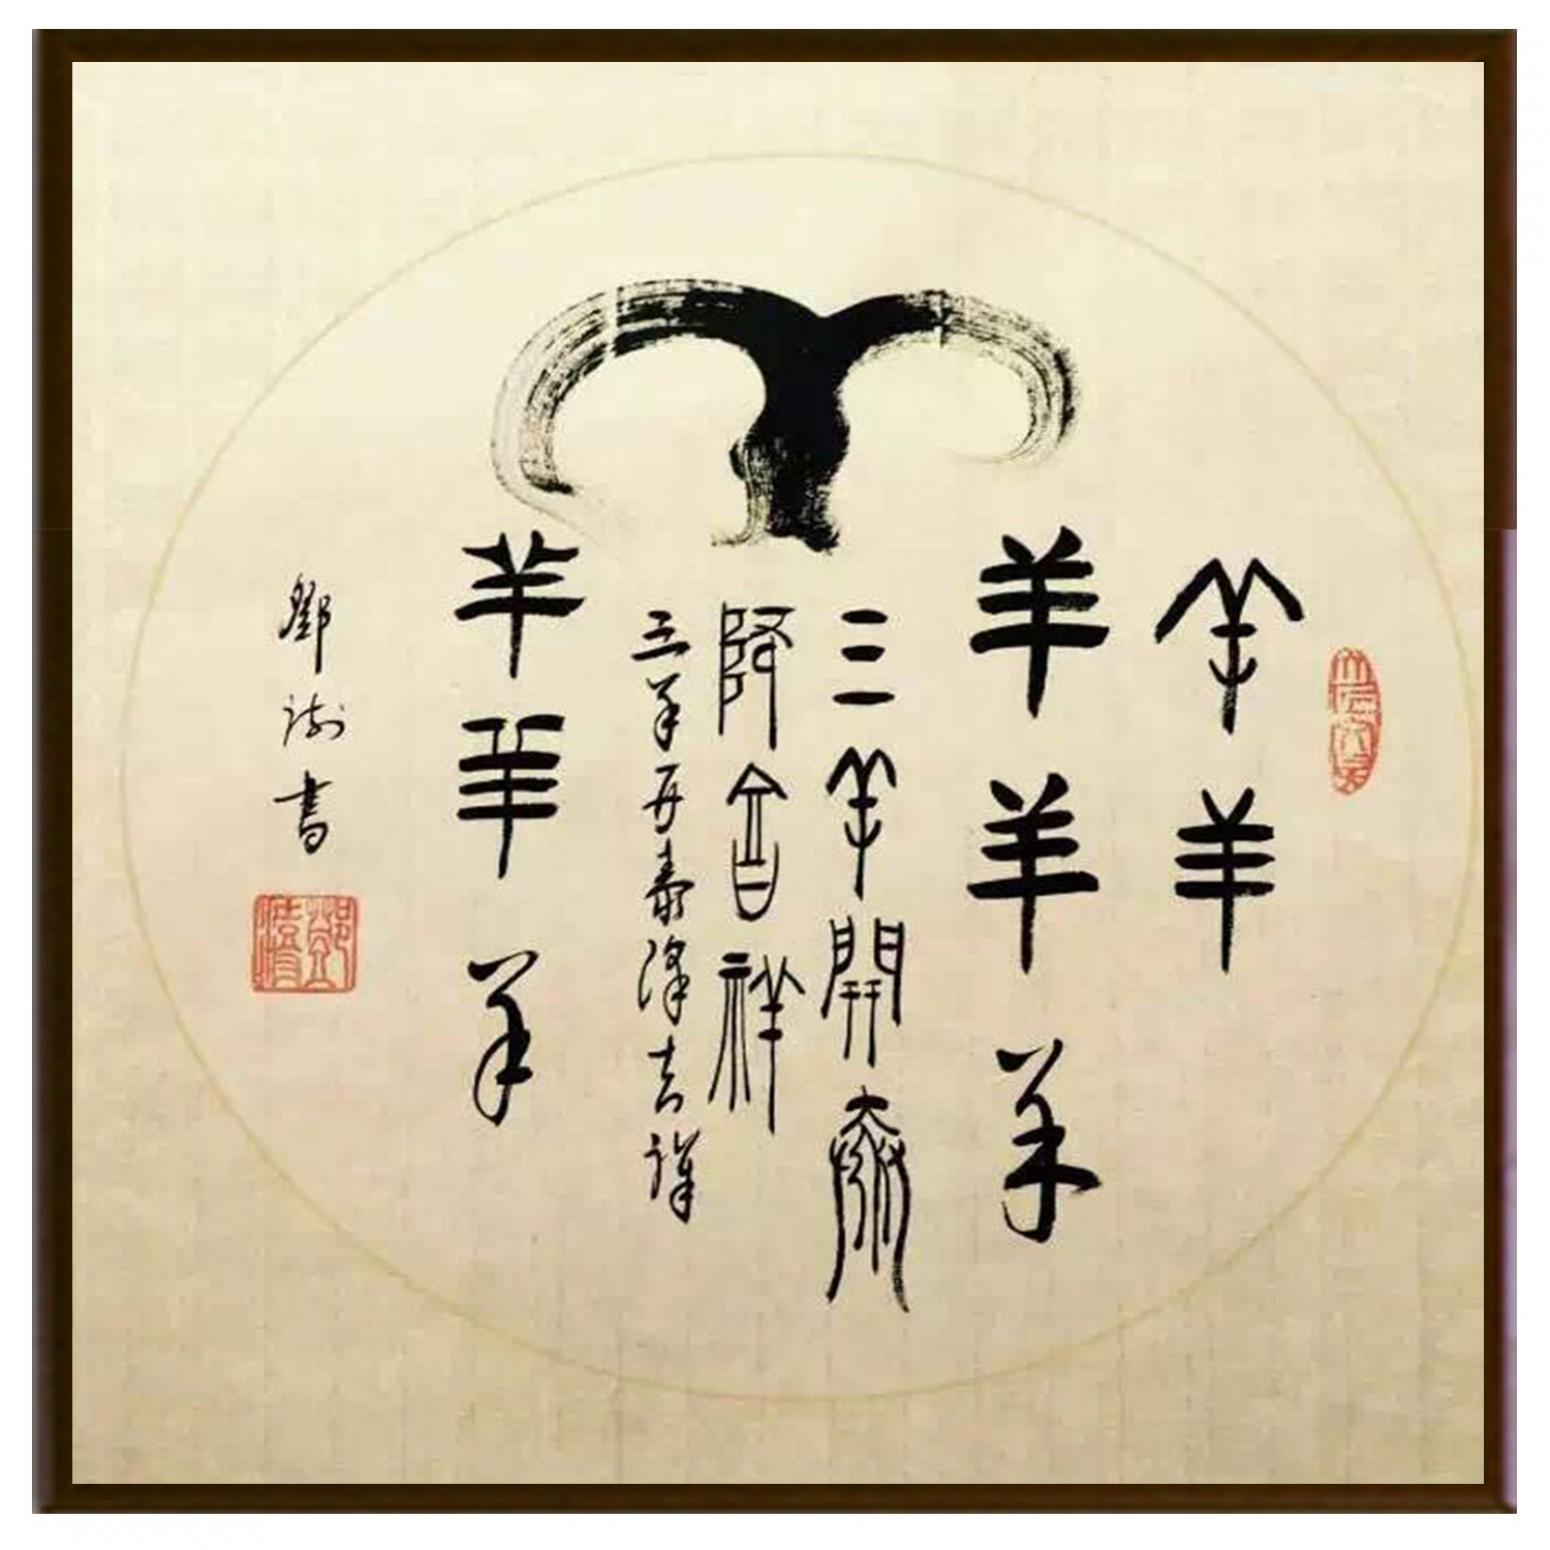 羊羊
羊羊羊
三羊開泰
降吉祥
三羊开泰降吉祥
羊羊羊
鄧 書